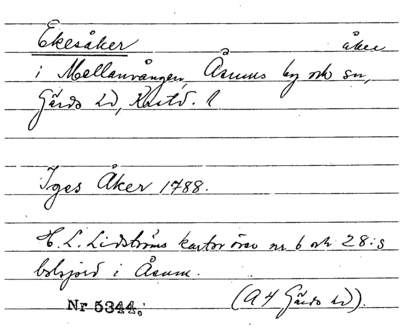 Ekesåker åker
i Mellanvången, Åsums by och sn,
Gärds hd, Krstd. l
Iges Åker 1788.
C. L. Lidströms kartor över nr 6 och 28:s
bolsjord i Åsum.
Nr 5344. (A 4 Gärds hd).